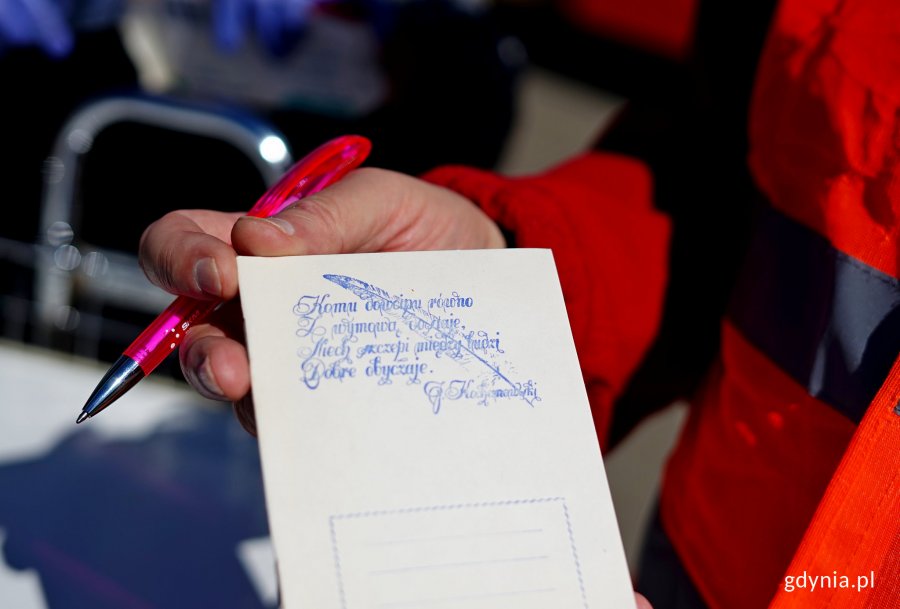 Komu dowcipu równo
Z wymową dostaje,
Niech szczepi między ludzi
Dobre obyczaje.
J. Kochanowski
gdynia.pl